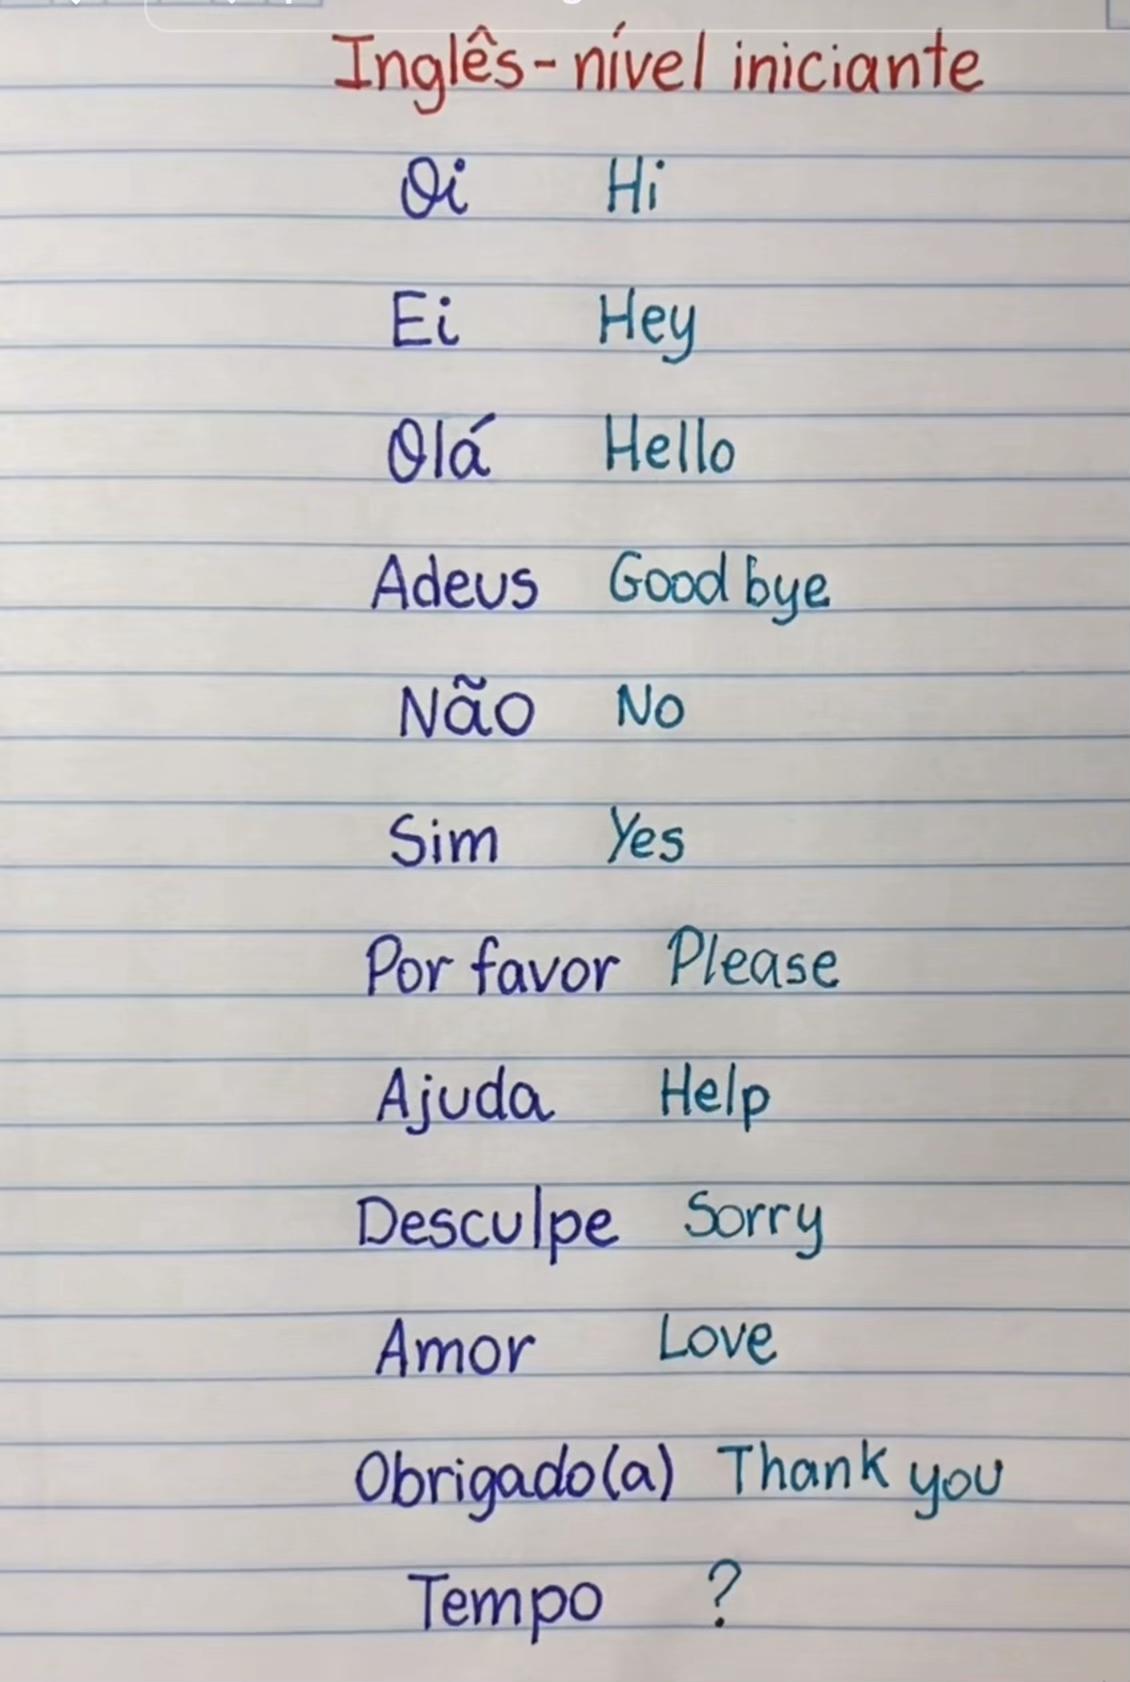 Inglês - nível iniciante
Oi Hi
Ei Hey
Olá Hello
Adeus Good bye
Não No
Sim Yes
Por favor Please
Ajuda Help
Desculpe Sorry
Amor Love
Obrigado(a) Thank you
Tempo ?